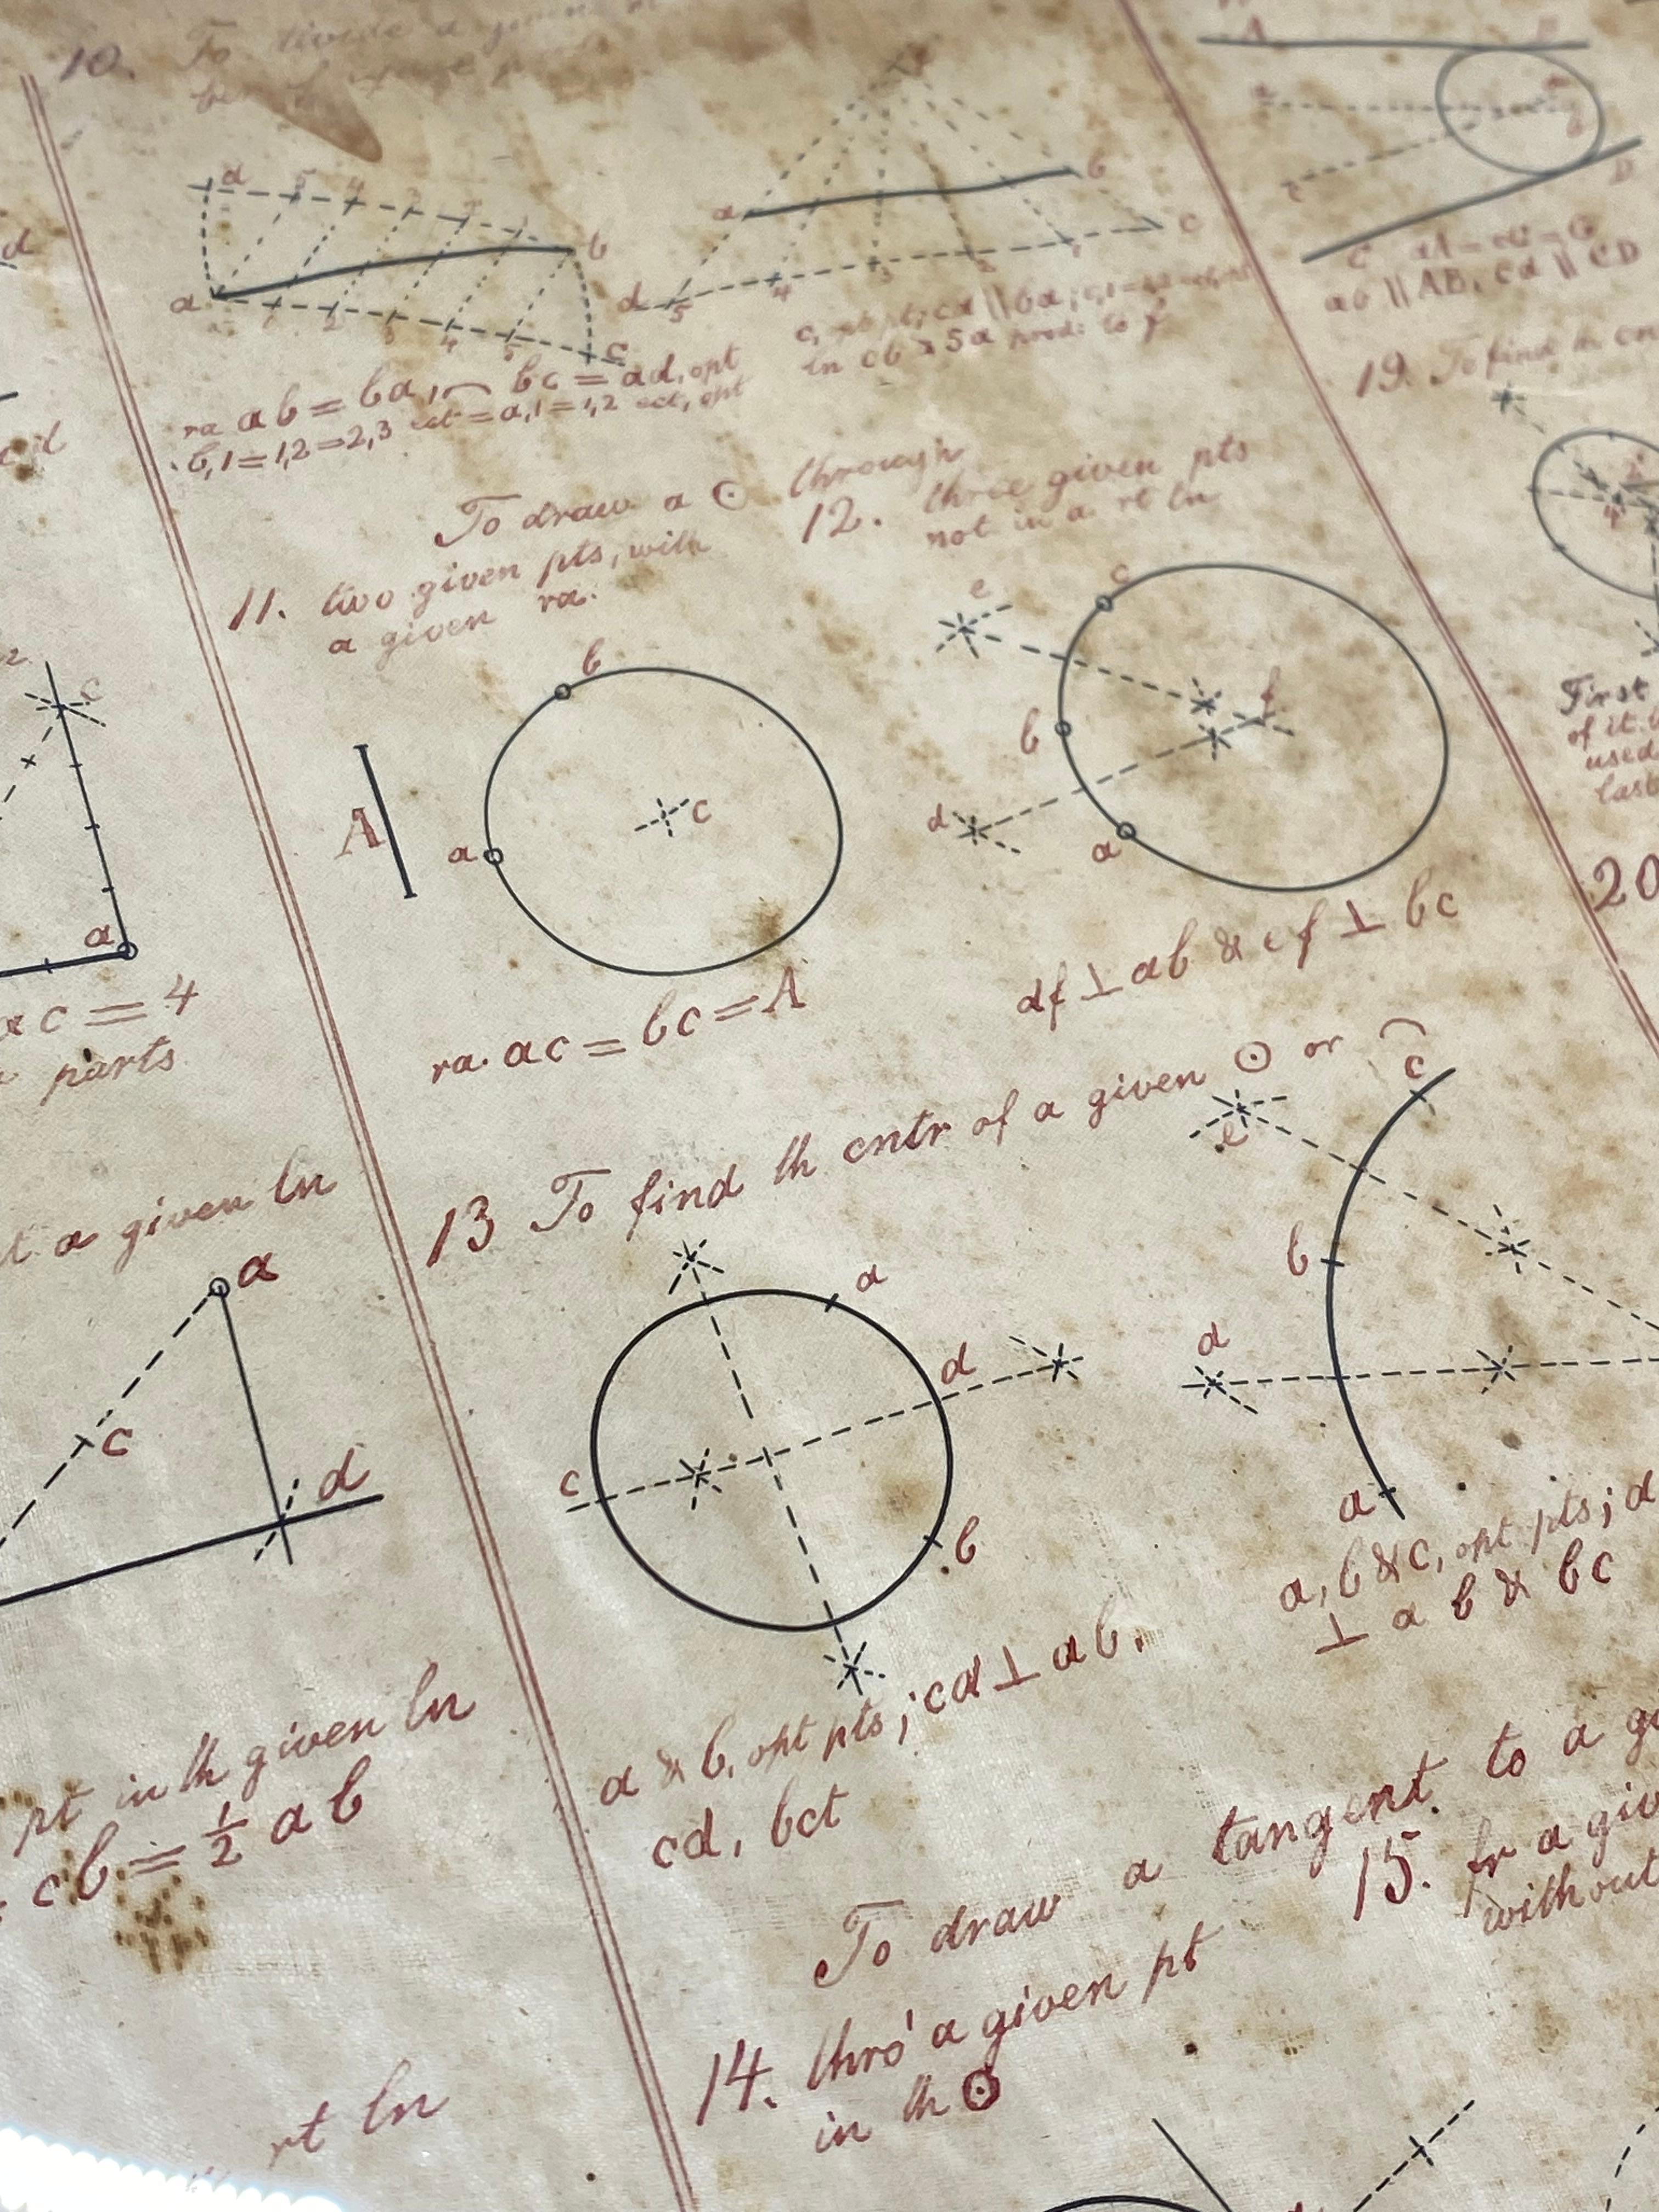 10. To divide a given
d 5 4 3 2 1 b
a 1 2 3 4 5 c
ra ab = ba, ⌒ bc = ad, opt
b,1 = 1,2 = 2,3 ect = a,1 = 1,2 ect, opt
a b
d 5 4 3 2 1 c
c, opt pt; cd ∥ ba;
ln cb & 5a prod: to f
To draw a ⊙ through
11. two given pts, with
a given ra.
A
a b c
ra. ac = bc = A
12. three given pts
not in a rt ln
e c b f d a
df ⊥ ab & ef ⊥ bc
13 To find th cntr of a given ⊙ or ⌒
a d c b
a & b, opt pts; cd ⊥ ab.
cd, bct
c e b d a
a, b & c, opt pts; d
⊥ ab & bc
To draw a tangent to a
14. thro' a given pt
in th ⊙
15. fr a
without
d
c
a
ac = 4
parts
a given ln
a
c d
pt in th given ln
cb = 1/2 ab
rt ln
A
a
c
C D
ab ∥ AB, cd ∥ CD
19. To find th
First
of it
used
last
20